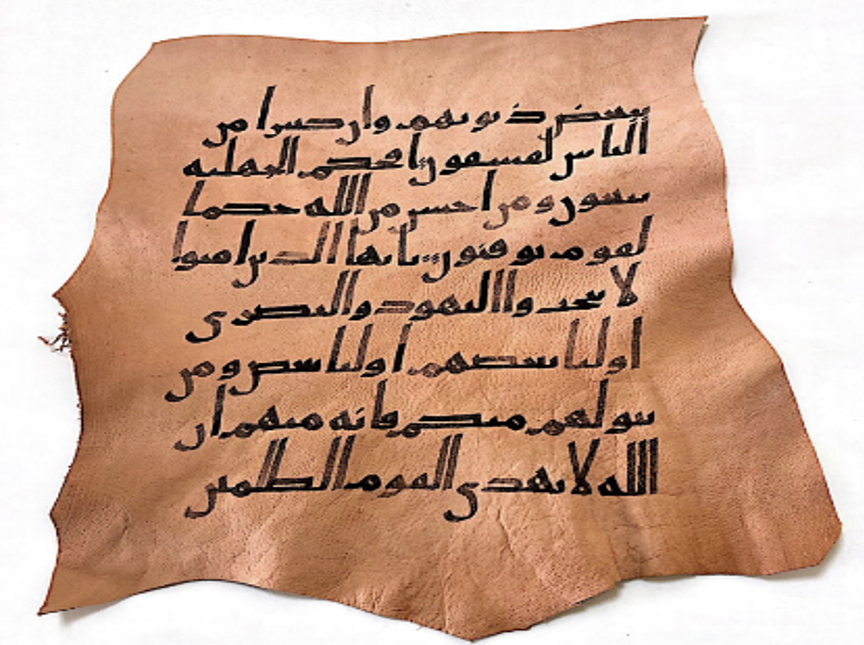 ببعض ذنوبهم وان كثيرا من
الناس لفسقون افحكم الجهليه
يبغون ومن احسن من الله حكما
لقوم يوقنون يايها الذين امنوا
لا تتخذوا اليهود والنصرى
اوليا بعضهم اوليا بعض ومن
يتولهم منكم فانه منهم ان
الله لا يهدي القوم الظلمين